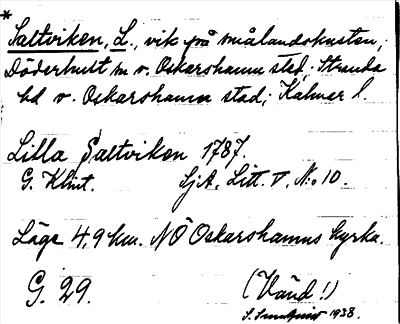 *
Saltviken, L., vik på smålandskusten,
Döderhult sn o. Oskarshamn stad, Stranda
hd o. Oskarshamn stad, Kalmar l.
Lilla Saltviken 1787.
G. Klint. SjA. Litt. V, N:o 10.
Läge 4,9 km. NÖ Oskarshamns kyrka.
G. 29. (Vänd!)
S. 1938.